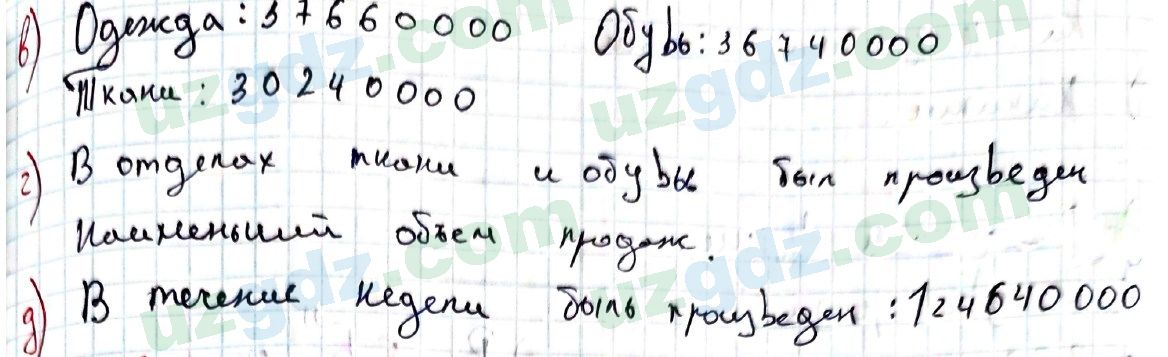 в) Одежда: 37660000 Обувь: 36740000
Ткани: 30240000
г) В отделах ткани и обувы был произведен
наименьший объем продаж.
д) В течение недели быль произведен: 124640000
uzgdz.com